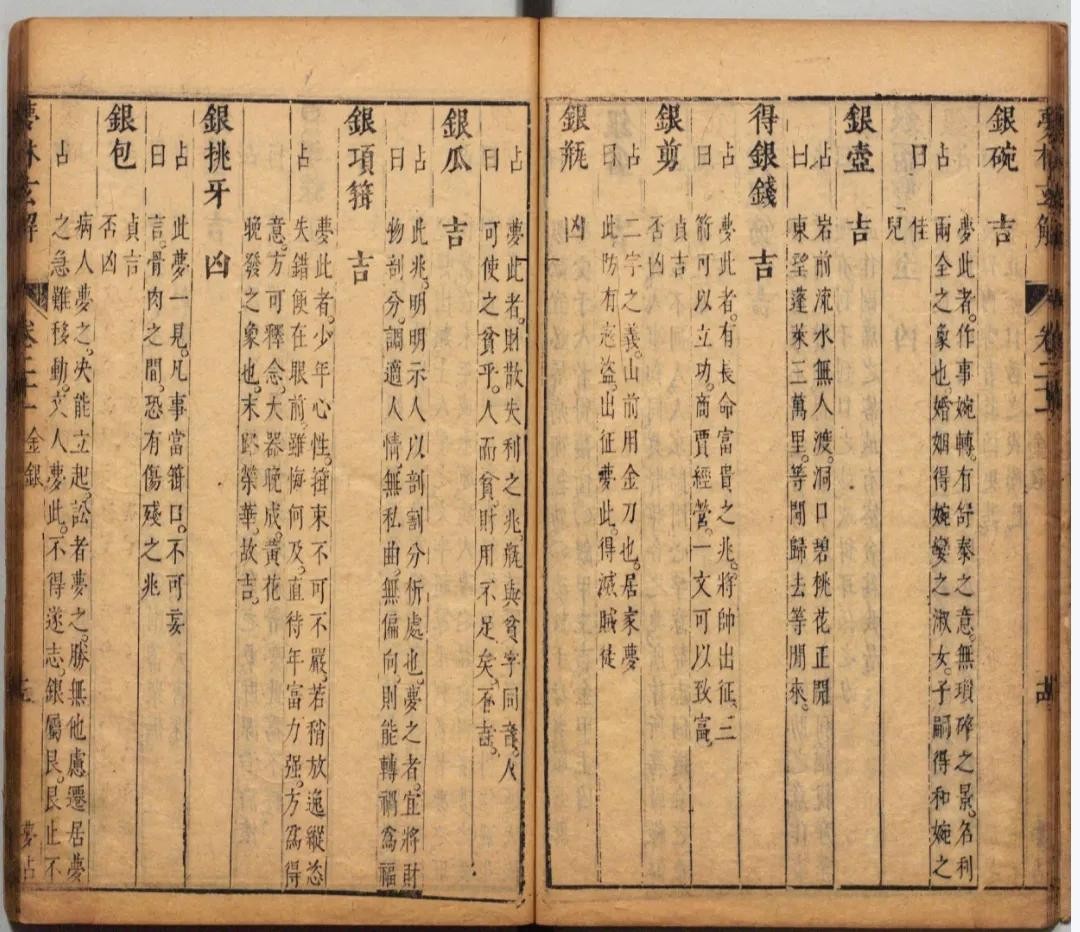 夢林玄解
卷二十一
銀碗 吉
占曰
夢此者。作事婉轉。有舒泰之意。無瑣碎之景。名利
兩全之象也。婚姻得婉孌之淑女。子嗣得和婉之
佳兒
銀壺 吉
占曰
岩前流水無人渡。洞口碧桃花正開
東望蓬萊三萬里。等閒歸去等閒來。
得銀錢 吉
占曰
夢此者。有長命富貴之兆。將帥出征。三
箭可以立功。商賈經營。一文可以致富。
銀剪
貞吉
否凶
占曰
二字之義。山前用金刀也。居家夢
此防有盜。出征夢此。得滅賊徒
銀瓶 凶
占曰
夢此者。財散失利之兆。瓶與貧字同音。人
可使之貧乎。人而貧。財用不足矣。不吉。
銀瓜 吉
占曰
此兆。明明示人以剖割分析處也。夢之者。宜將財
物剖分。調適人情。無私曲。無偏向。則能轉禍為福
銀項箍 吉
占
夢此者。少年心性。箍束不可不嚴。若稍放逸縱恣
失錯便在眼前。雖悔何及。直待年富力强。方為得
意。方可釋念。大器晚成。黃花
晚發之象也。末路榮華。故吉。
銀挑牙 凶
占曰
此夢一見。凡事當箝口。不可妄
言。骨肉之間。恐有傷殘之兆
銀包
貞吉
否凶
占
病人夢之。決能立起。訟者夢之。勝無他慮。遷居夢
之急難移動。文人夢此。不得遂志。銀屬艮。艮止不
夢林玄解
卷二十一 金銀
夢占